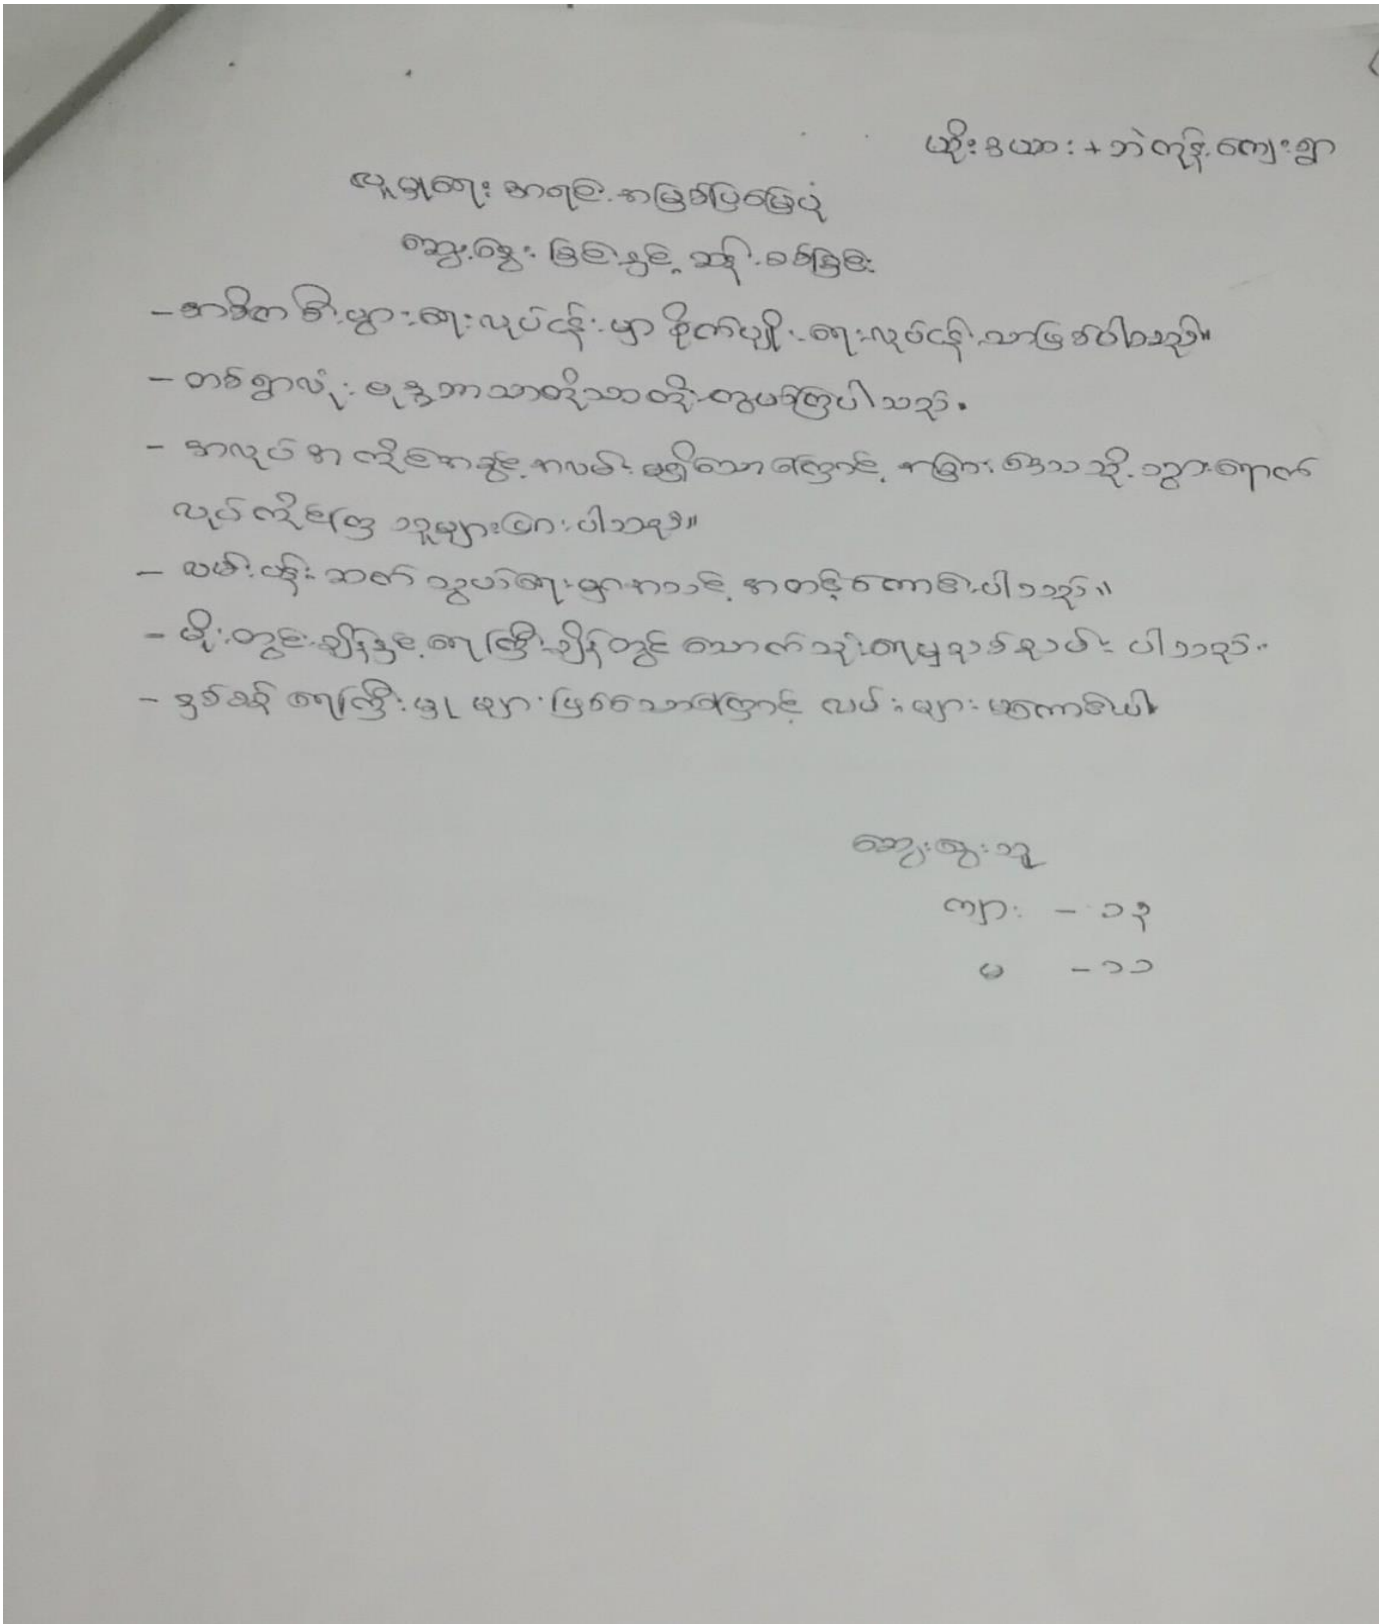 ယိုးဒယား + ဘဲကုန်း ကျေးရွာ
လူမှုရေး အရင်းအမြစ်ပြမြေပုံ
ဆွေးနွေးခြင်းနှင့် ဆန်းစစ်ခြင်း
- အဓိက စီးပွားရေးလုပ်ငန်းမှာ စိုက်ပျိုးရေးလုပ်ငန်းသာဖြစ်ပါသည်။
- တစ်ရွာလုံး ဗုဒ္ဓဘာသာကိုသာကိုးကွယ်ကြပါသည်။
- အလုပ်အကိုင်အခွင့်အလမ်း မရှိသောကြောင့် အခြားဒေသသို့ သွားရောက်
လုပ်ကိုင်ကြသူများပြားပါသည်။
- လမ်းပန်းဆက်သွယ်ရေးမှာအသင့်အတင့်ကောင်းပါသည်။
- မိုးတွင်းချိန်နှင့်ရေကြီးချိန်တွင် သောက်သုံးရေမှာ ပါသည်။
- နှစ်စဉ် ရေကြီးမှုများဖြစ်သောကြောင့် လမ်းများမကောင်းပါ
ဆွေးနွေးသူ
ကျား - ၁၃
မ - ၁၁